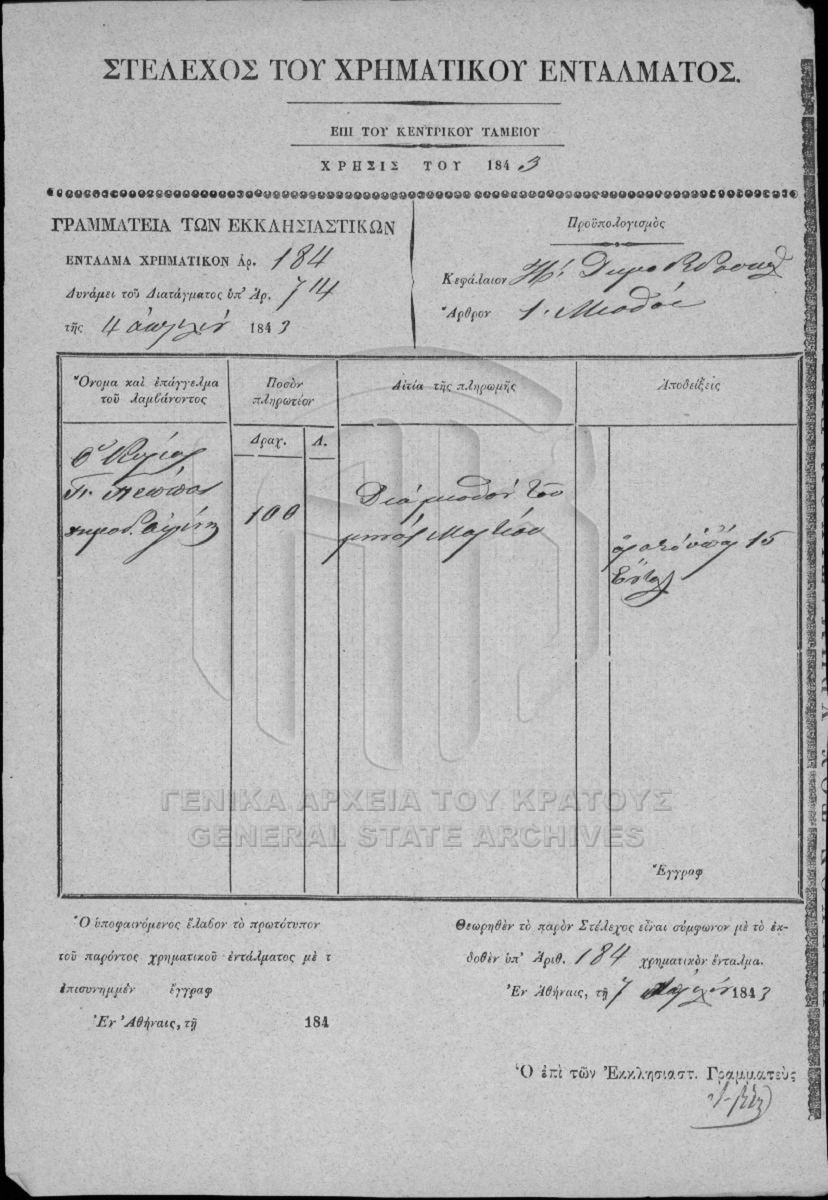 ΣΤΕΛΕΧΟΣ ΤΟΥ ΧΡΗΜΑΤΙΚΟΥ ΕΝΤΑΛΜΑΤΟΣ.
ΕΠΙ ΤΟΥ ΚΕΝΤΡΙΚΟΥ ΤΑΜΕΙΟΥ
ΧΡΗΣΙΣ ΤΟΥ 1843
ΓΡΑΜΜΑΤΕΙΑ ΤΩΝ ΕΚΚΛΗΣΙΑΣΤΙΚΩΝ
ΕΝΤΑΛΜΑ ΧΡΗΜΑΤΙΚΟΝ Ἀρ. 184
Δυνάμει τοῦ Διατάγματος ὑπ' Ἀρ. 714
τῆς 4 1843
Προϋπολογισμὸς
Κεφάλαιον
Ἄρθρον 1. Μισθοί
Ὄνομα καὶ ἐπάγγελμα τοῦ λαμβάνοντος
Ποσὸν πληρωτέον
Αἰτία τῆς πληρωμῆς
Ἀποδείξεις
Δραχ. Λ.
ὁ Κύριος
100
Διὰ μισθὸν τοῦ
μηνὸς Μαρτίου
15
Ἔγγραφ
Ὁ ὑποφαινόμενος ἔλαβον τὸ πρωτότυπον
τοῦ παρόντος χρηματικοῦ ἐντάλματος μὲ τ
ἐπισυνημμέν ἔγγραφ
Ἐν Ἀθήναις, τῇ 184
Θεωρηθὲν τὸ παρὸν Στέλεχος εἶναι σύμφωνον μὲ τὸ ἐκ-
δοθὲν ὑπ' Ἀριθ. 184 χρηματικὸν ἔνταλμα.
Ἐν Ἀθήναις, τῇ 7 1843
Ὁ ἐπὶ τῶν Ἐκκλησιαστ. Γραμματεὺς
ΓΕΝΙΚΑ ΑΡΧΕΙΑ ΤΟΥ ΚΡΑΤΟΥΣ
GENERAL STATE ARCHIVES